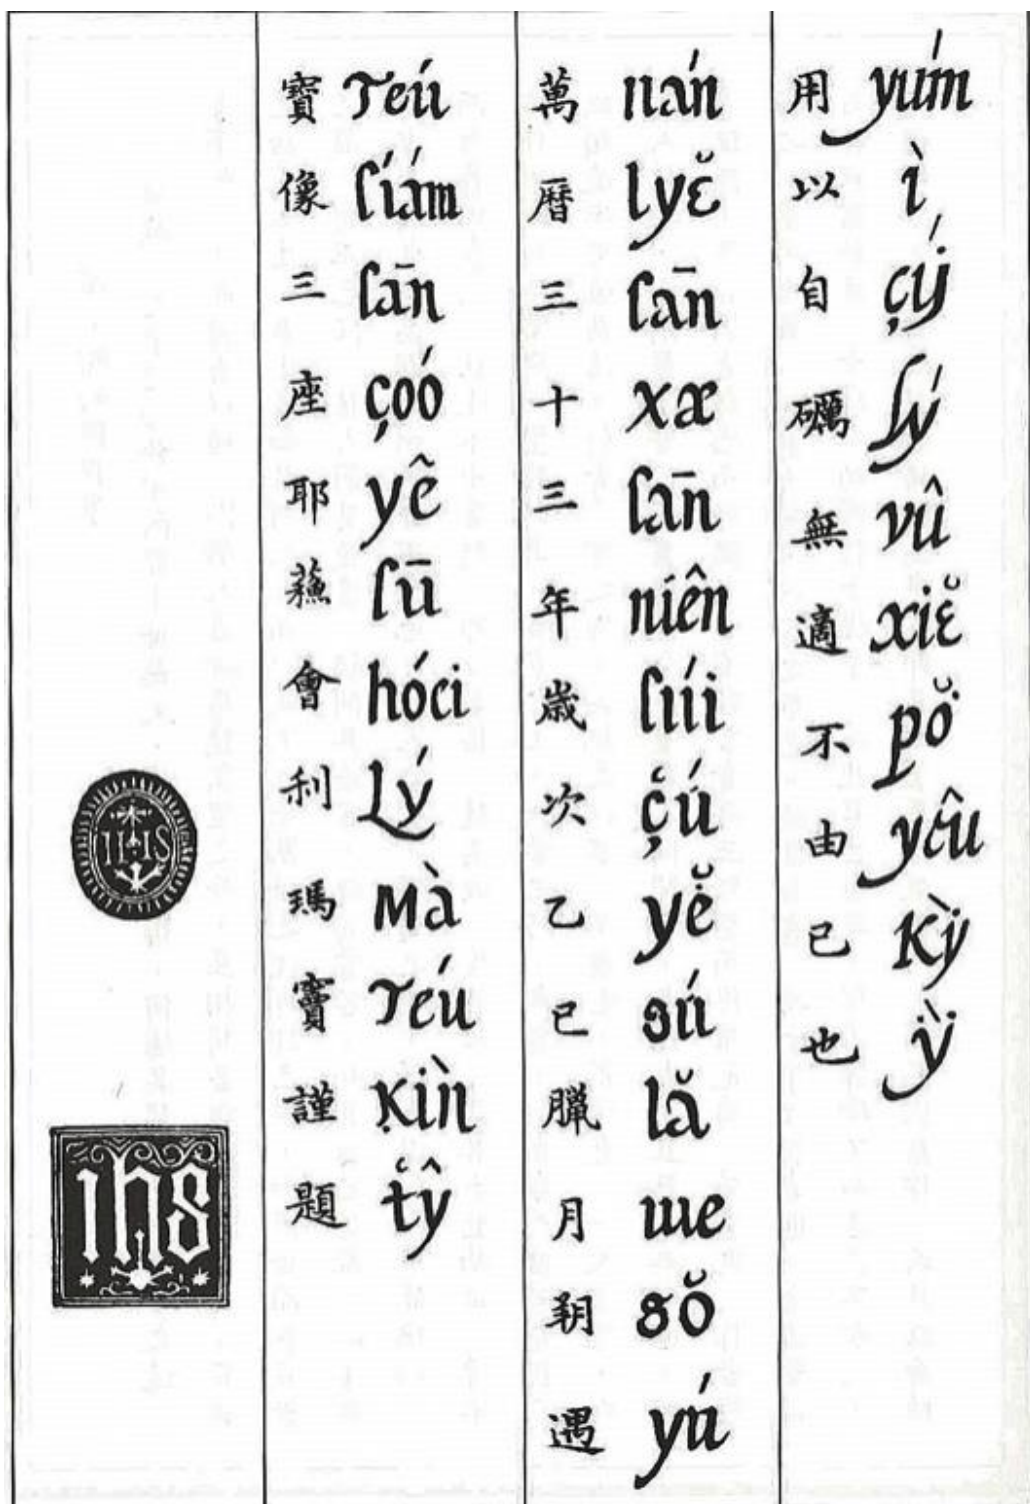 用 yúm 以 ì 自 çý 礪 ſý 無 vû 適 xiĕ 不 pŏ 由 yêu 已 Kỳ 也 ỳ
萬 uán 曆 lyĕ 三 ſān 十 xæ 三 ſān 年 niên 歲 ſúi 次 çú 乙 yĕ 巳 sú 臘 lă 月 iue 朔 sŏ 遇 yú
寶 Teú 像 ſiám 三 ſān 座 çoó 耶 yê 蘓 ſū 會 hóei 利 Lý 瑪 Mà 竇 Téu 謹 Kìn 題 tŷ
IHS
ihs